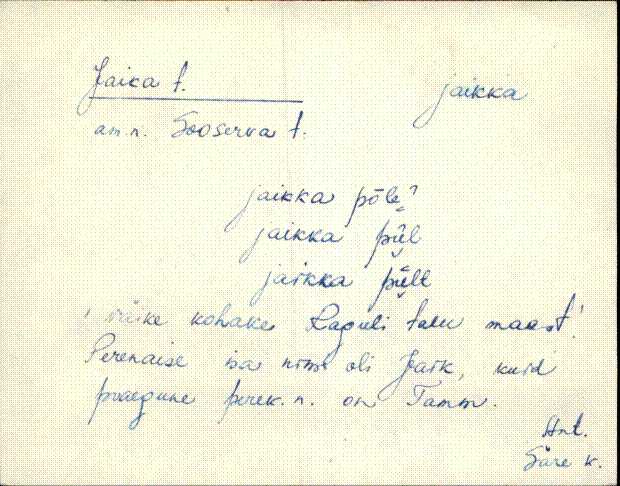 Jaika t.
jaikka
am. n. Sooserva t.
jaikka põle?
jaikka piil
jaikka piilt
väike kohake Raguli talu maast!
Perenaise isa nimi oli Jaik, kuid
praegune perek. n. on Tamm.
Hnt.
Säre k.